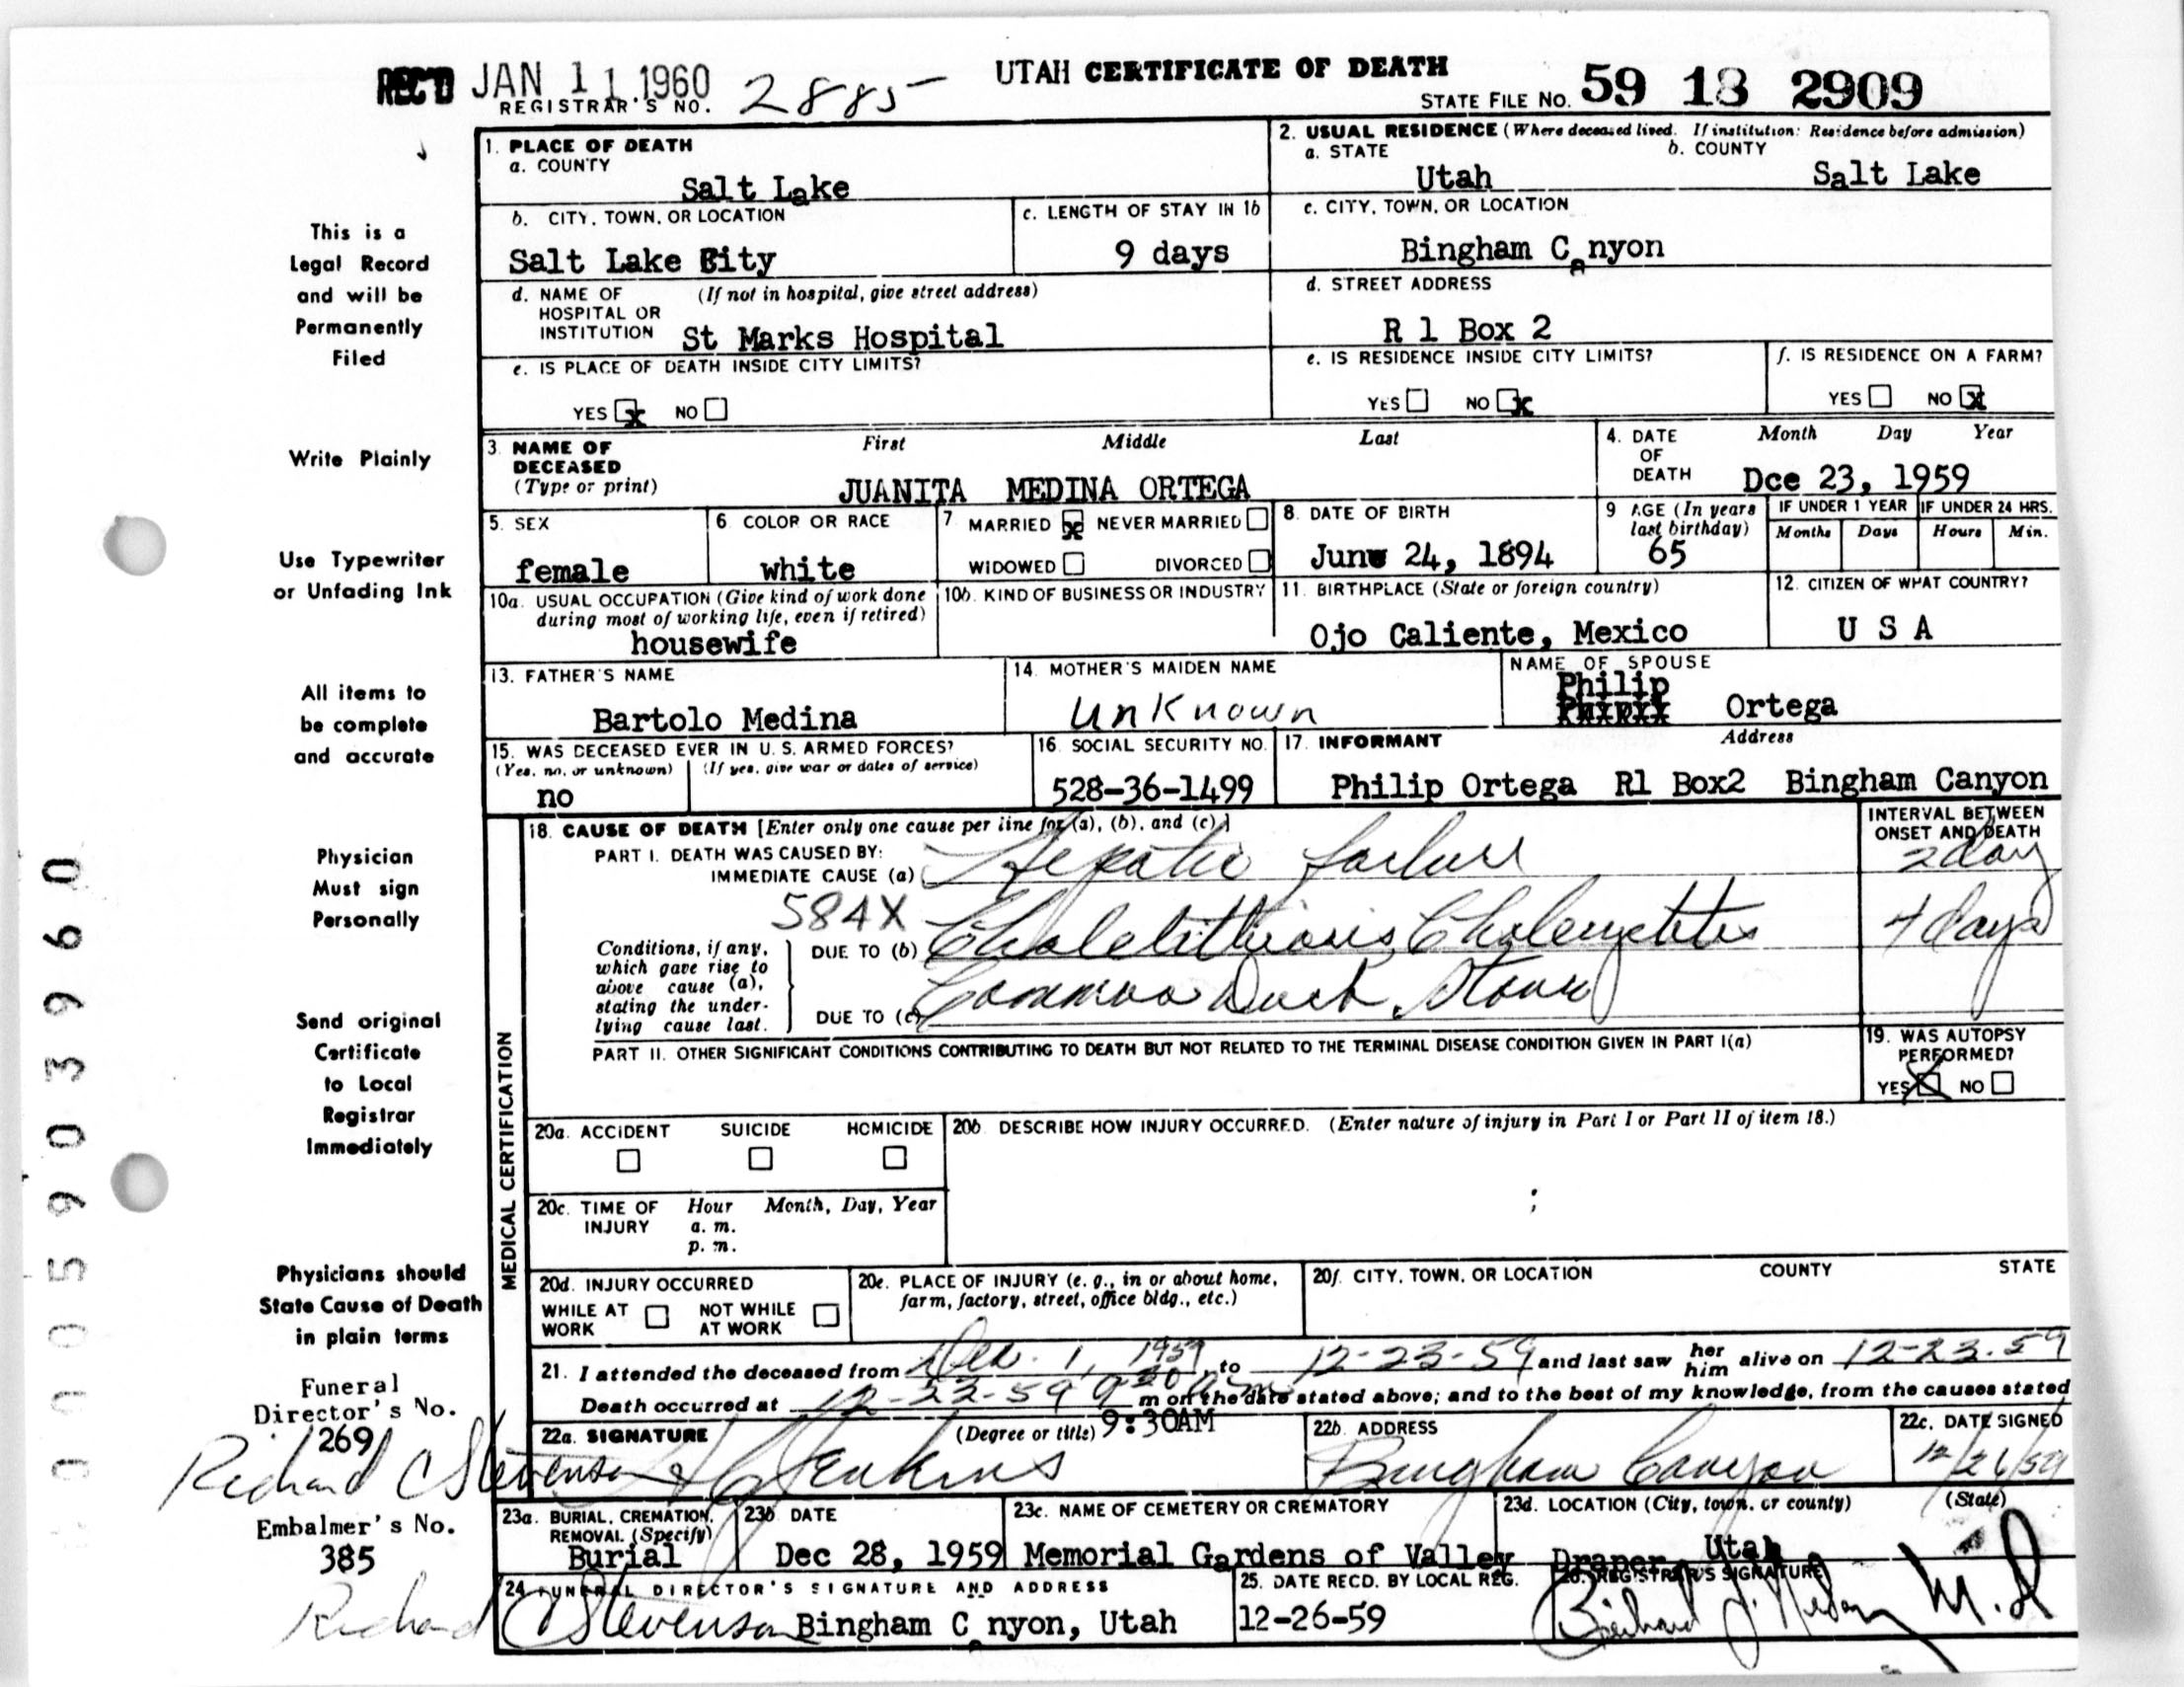 REC'D JAN 11 1960
REGISTRAR'S NO. 2885
UTAH CERTIFICATE OF DEATH
STATE FILE NO. 59 18 2909
1. PLACE OF DEATH
a. COUNTY
Salt Lake
2. USUAL RESIDENCE (Where deceased lived. If institution: Residence before admission)
a. STATE b. COUNTY
Utah Salt Lake
b. CITY, TOWN, OR LOCATION
Salt Lake City
c. LENGTH OF STAY IN 1b
9 days
c. CITY, TOWN, OR LOCATION
Bingham Canyon
d. NAME OF (If not in hospital, give street address)
HOSPITAL OR
INSTITUTION St Marks Hospital
d. STREET ADDRESS
R 1 Box 2
e. IS PLACE OF DEATH INSIDE CITY LIMITS?
YES x NO
e. IS RESIDENCE INSIDE CITY LIMITS?
YES NO x
f. IS RESIDENCE ON A FARM?
YES NO x
3. NAME OF DECEASED
(Type or print)
First Middle Last
JUANITA MEDINA ORTEGA
4. DATE OF DEATH
Month Day Year
Dce 23, 1959
5. SEX
female
6. COLOR OR RACE
white
7. MARRIED x NEVER MARRIED
WIDOWED DIVORCED
8. DATE OF BIRTH
June 24, 1894
9 AGE (In years last birthday)
65
IF UNDER 1 YEAR IF UNDER 24 HRS.
Months Days Hours Min.
10a. USUAL OCCUPATION (Give kind of work done
during most of working life, even if retired)
housewife
10b. KIND OF BUSINESS OR INDUSTRY
11. BIRTHPLACE (State or foreign country)
Ojo Caliente, Mexico
12. CITIZEN OF WHAT COUNTRY?
U S A
13. FATHER'S NAME
Bartolo Medina
14. MOTHER'S MAIDEN NAME
Unknown
NAME OF SPOUSE
Philip
Ortega
15. WAS DECEASED EVER IN U. S. ARMED FORCES?
(Yes, no, or unknown) (If yes, give war or dates of service)
no
16. SOCIAL SECURITY NO.
528-36-1499
17. INFORMANT Address
Philip Ortega R1 Box2 Bingham Canyon
MEDICAL CERTIFICATION
18. CAUSE OF DEATH [Enter only one cause per line for (a), (b), and (c).]
INTERVAL BETWEEN
ONSET AND DEATH
PART I. DEATH WAS CAUSED BY:
IMMEDIATE CAUSE (a) Hepatic failure 2 day
584X
Conditions, if any,
which gave rise to
above cause (a),
stating the under-
lying cause last.
DUE TO (b) Cholelithiasis, Cholecystitis days
DUE TO (c) Common Duct Stone
PART II. OTHER SIGNIFICANT CONDITIONS CONTRIBUTING TO DEATH BUT NOT RELATED TO THE TERMINAL DISEASE CONDITION GIVEN IN PART I(a)
19. WAS AUTOPSY
PERFORMED?
YES X NO
20a. ACCIDENT SUICIDE HOMICIDE
20b. DESCRIBE HOW INJURY OCCURRED. (Enter nature of injury in Part I or Part II of item 18.)
20c. TIME OF INJURY
Hour Month, Day, Year
a. m.
p. m.
20d. INJURY OCCURRED
WHILE AT WORK NOT WHILE AT WORK
20e. PLACE OF INJURY (e. g., in or about home,
farm, factory, street, office bldg., etc.)
20f. CITY, TOWN, OR LOCATION COUNTY STATE
21. I attended the deceased from Dec. 1, 1959 to 12-23-59 and last saw her him alive on 12-23-59
Death occurred at 12-22-59 m on the date stated above; and to the best of my knowledge, from the causes stated
22a. SIGNATURE (Degree or title) 9:30AM
Jenkins
22b. ADDRESS
Bingham Canyon
22c. DATE SIGNED
12/26/59
23a. BURIAL, CREMATION,
REMOVAL (Specify)
Burial
23b DATE
Dec 28, 1959
23c. NAME OF CEMETERY OR CREMATORY
Memorial Gardens of Valley
23d. LOCATION (City, town, or county) (State)
Draper, Utah
24. FUNERAL DIRECTOR'S SIGNATURE AND ADDRESS
Richard C Stevenson Bingham Canyon, Utah
25. DATE RECD. BY LOCAL REG.
12-26-59
26. REGISTRAR'S SIGNATURE
M.D
This is a
Legal Record
and will be
Permanently
Filed
Write Plainly
Use Typewriter
or Unfading Ink
All items to
be complete
and accurate
Physician
Must sign
Personally
Send original
Certificate
to Local
Registrar
Immediately
Physicians should
State Cause of Death
in plain terms
Funeral
Director's No.
269
Richard C Stevenson
Embalmer's No.
385